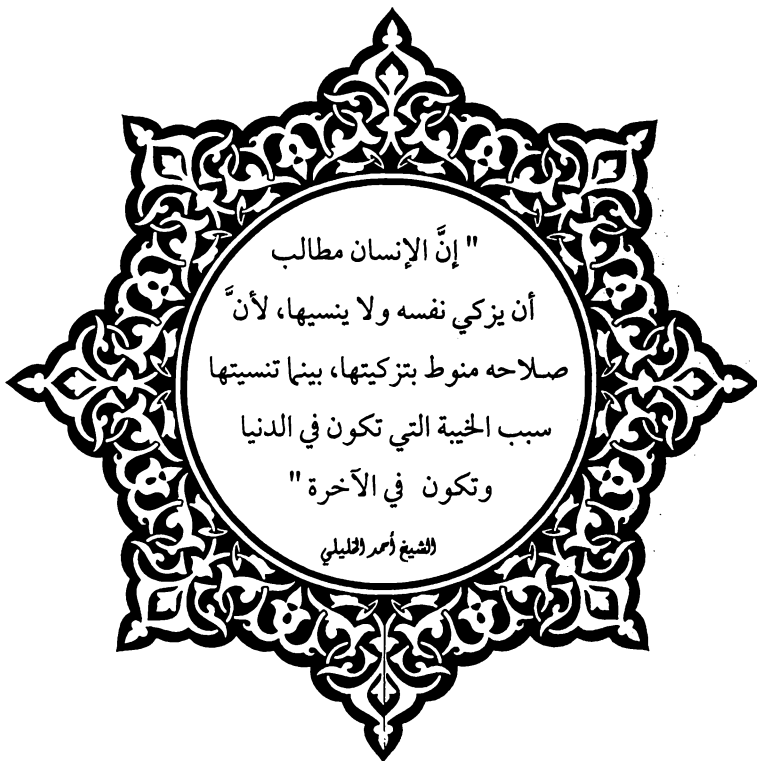 " إنَّ الإنسان مطالب
أن يزكي نفسه ولا ينسيها، لأنَّ
صلاحه منوط بتزكيتها، بينما تنسيتها
سبب الخيبة التي تكون في الدنيا
وتكون في الآخرة "
الشيخ أحمد الخليلي